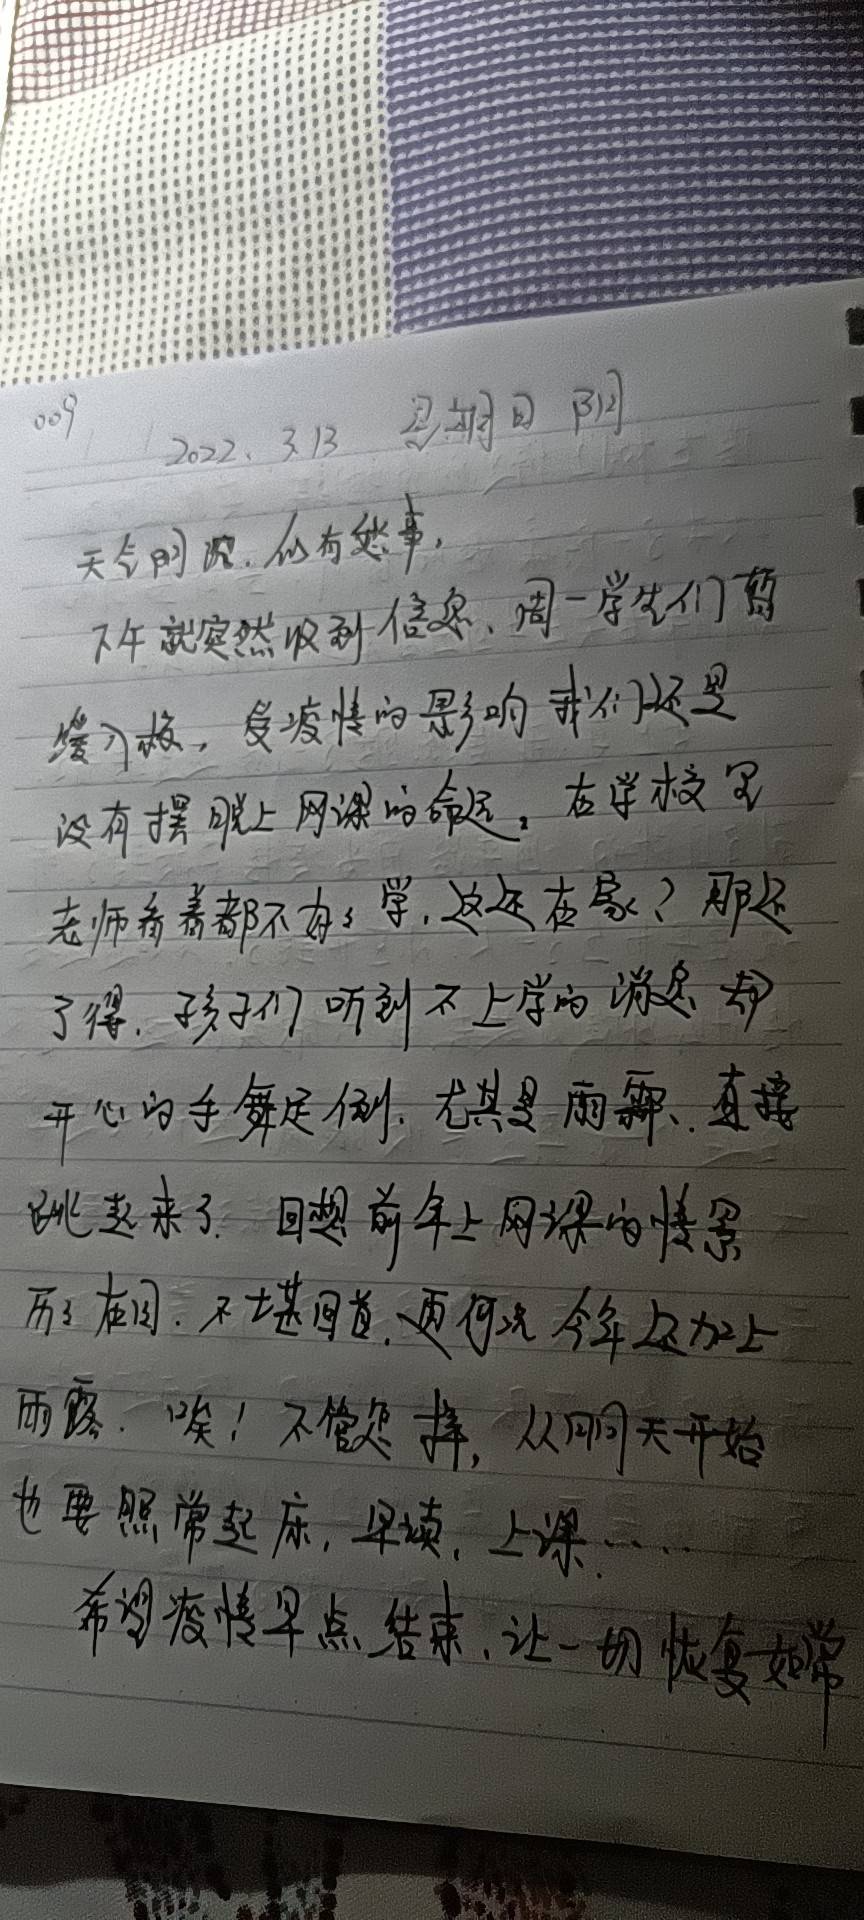 009
2022. 3.13 星期日 阴
天气阴沉.似有愁事.
下午就突然收到信息、周一学生们暂
缓入校，受疫情的影响我们还是
没有摆脱上网课的命运。在学校里
老师看着都不好好学.这还在家？那还
了得.孩子们听到不上学的消息却
开心的手舞足倒.尤其是雨霏、.直接
跳起来了.回想前年上网课的情景
历历在目.不堪回首.更何况今年又加上
雨露.唉！不管怎样，从明天开始
也要照常起床，早读，上课.....
希望疫情早点结束、让一切恢复如常